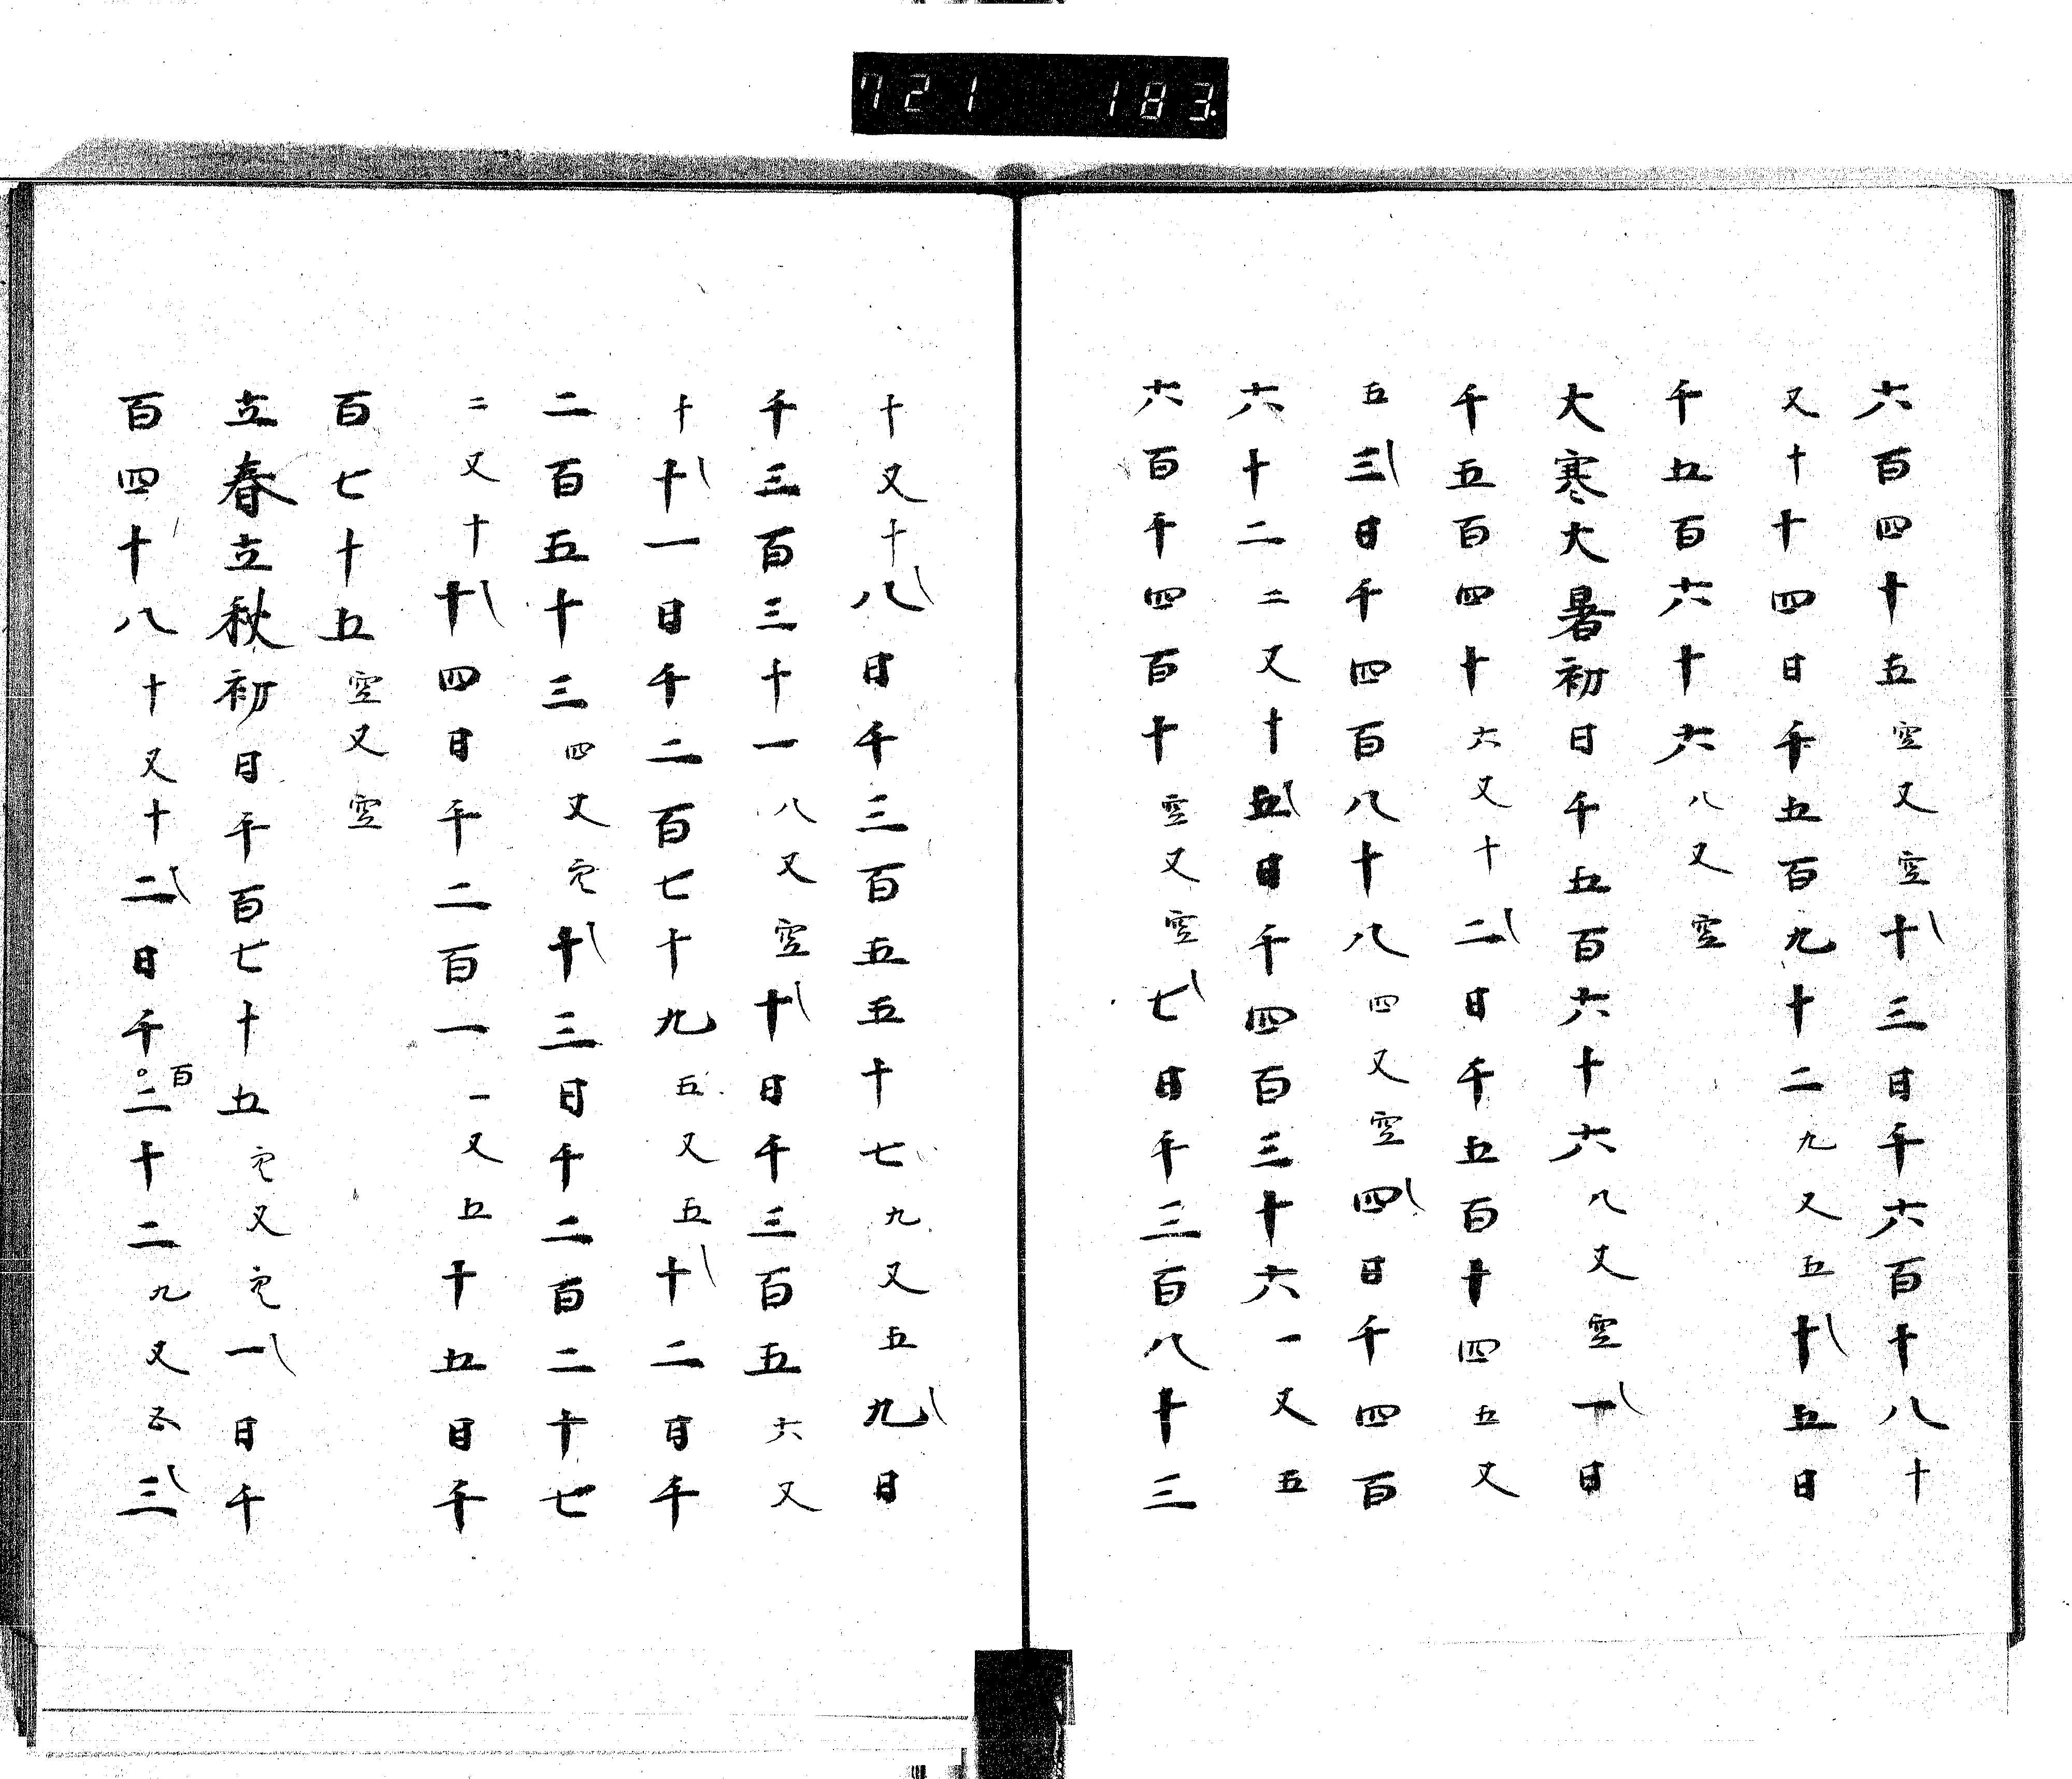 721 183
六百四十五空又空十三日千六百十八十
又十十四日千五百九十二九又五十五日
千五百六十六八又空
大寒大暑初日千五百六十六八又空一日
千五百四十六又十二日千五百十四五又
五三日千四百八十八四又空四日千四百
六十二二又十五日千四百三十六一又五
六百千四百十空又空七日千三百八十三
十又十八日千三百五五十七九又五九日
千三百三十一八又空十日千三百五六又
十十一日千二百七十九五又五十二日千
二百五十三四又空十三日千二百二十七
二又十十四日千二百一一又五十五日千
百七十五空又空
立春立秋初日千百七十五空又空一日千
百四十八十又十二日千百二十二九又五三